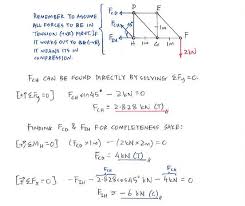 REMEMBER TO ASSUME
ALL FORCES TO BE IN
TENSION (+VE) FIRST. IF
IT WORKS OUT TO BE (-VE)
IT MEANS ITS IN
COMPRESSION.
FCD
FCH
FIH
D E
H G F
1m 1m
1m
2kN
FCH CAN BE FOUND DIRECTLY BY SOLVING ΣFy=0.
[+↑ΣFy=0] FCH sin45° - 2kN = 0
FCH = 2.828 kN (T)
FINDING FCD & FIH FOR COMPLETENESS SAKE:
[ΣMH=0] (FCD×1m) - (2kN×2m) = 0
FCD = 4kN (T)
[ΣFx=0] -FIH - 2.828cos45° kN - 4kN = 0
FCH FCD
FIH = -6 kN (C)